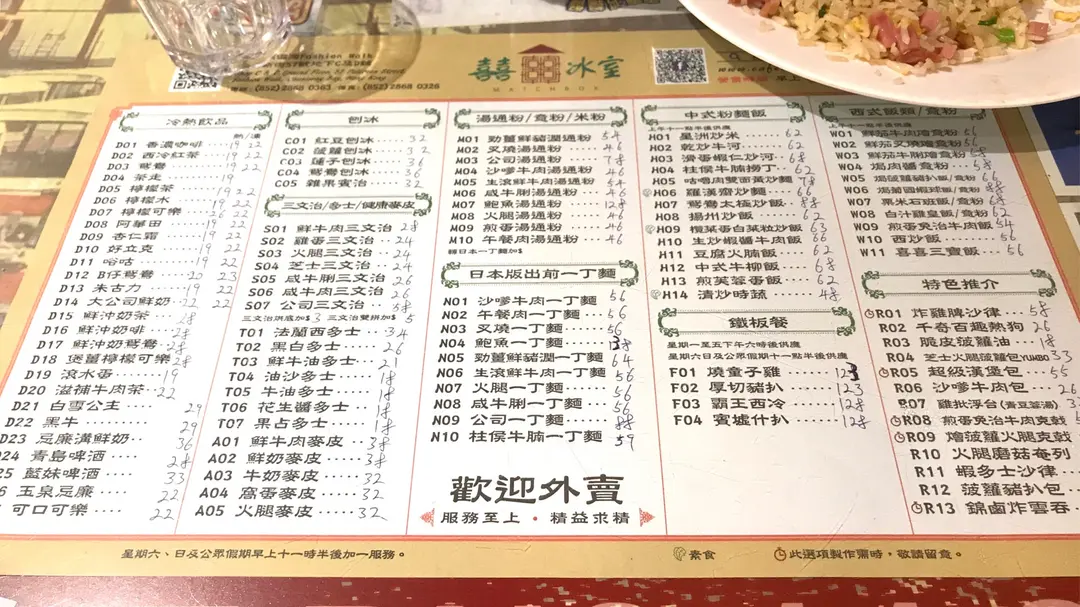 Fashion Walk
(852) 2868 0363
(852) 2868 0328
喜喜冰室
MATCHBOX
冷熱飲品
熱/凍
D01 香濃咖啡 19 22
D02 西冷紅茶 19 22
D03 鴛鴦 19 22
D04 茶走
D05 檸檬茶 19 22
D06 檸檬水 19 22
D07 檸檬可樂 26 22
D08 阿華田 19 22
D09 杏仁霜 19 22
D10 好立克 19 22
D11 哈咕 19 22
D12 B仔鴛鴦 20 23
D13 朱古力 19 22
D14 大公司鮮奶 22 22
D15 鮮沖奶茶 28
D16 鮮沖奶啡 28
D17 鮮沖奶鴛鴦 28
D18 煲薑檸檬可樂 28
D19 滾水蛋 19
D20 滋補牛肉茶 22
D21 白雪公主 29
D22 黑牛 29
D23 忌廉溝鮮奶 36
24 青島啤酒 28
25 藍妹啤酒 33
6 玉泉忌廉 22
可口可樂 22
刨冰
C01 紅豆刨冰 32
C02 菠蘿刨冰 32
C03 蓮子刨冰 36
C04 鴛鴦刨冰 36
C05 雜果賓治 32
三文治/多士/健康麥皮
S01 鮮牛肉三文治 28
S02 雞蛋三文治 24
S03 火腿三文治 24
S04 芝士三文治 24
S05 咸牛脷三文治 26
S06 咸牛肉三文治 26
S07 公司三文治 38
三文治烘底加$3 三文治雙拼加$5
T01 法蘭西多士 34
T02 黑白多士 26
T03 鮮牛油多士 21
T04 油沙多士 18
T05 牛油多士 18
T06 花生醬多士 18
T07 果占多士 18
A01 鮮牛肉麥皮 38
A02 鮮奶麥皮 38
A03 牛奶麥皮 32
A04 窩蛋麥皮 32
A05 火腿麥皮 32
湯通粉/意粉/米粉
M01 勁薑鮮豬潤通粉 54
M02 叉燒湯通粉 46
M03 公司湯通粉 78
M04 沙嗲牛肉湯通粉 46
M05 生滾鮮牛肉湯通粉 54
M06 咸牛脷湯通粉 46
M07 鮑魚湯通粉 128
M08 火腿湯通粉 46
M09 煎蛋湯通粉 46
M10 午餐肉湯通粉 46
轉日本一丁麵加$
日本版出前一丁麵
N01 沙嗲牛肉一丁麵 56
N02 午餐肉一丁麵 56
N03 叉燒一丁麵 56
N04 鮑魚一丁麵 138
N05 勁薑鮮豬潤一丁麵 64
N06 生滾鮮牛肉一丁麵 56
N07 火腿一丁麵 56
N08 咸牛脷一丁麵 56
N09 公司一丁麵 88
N10 柱侯牛腩一丁麵 59
歡迎外賣
服務至上・精益求精
中式粉麵飯
上午十一點半後供應
H01 星洲炒米 62
H02 乾炒牛河 62
H03 滑蛋蝦仁炒河 68
H04 柱侯牛腩撈丁 62
H05 咕嚕肉雙面黃炒麵 78
H06 羅漢齋炒麵 66
H07 鴛鴦太極炒飯 88
H08 揚州炒飯 62
H09 欖菜蛋白菜粒炒飯 63
H10 生炒蝦醬牛肉飯 66
H11 豆腐火腩飯 62
H12 中式牛柳飯 68
H13 煎芙蓉蛋飯 62
H14 清炒時蔬 48
鐵板餐
星期一至五下午六時後供應
星期六日及公眾假期十一點半後供應
F01 燒童子雞 123
F02 厚切豬扒 123
F03 霸王西冷 128
F04 賓墟什扒 128
西式飯類/意粉
上午十一點半後供應
W01 鮮茄牛肉燴意粉 56
W02 鮮茄叉燒燴意粉 56
W03 鮮茄牛脷燴意粉 66
W04 焗肉醬意粉 58
W05 焗菠蘿豬扒飯/意粉 68
W06 焗葡國蝦球飯/意粉 88
W07 粟米石斑飯/意粉 68
W08 白汁雞皇飯/意粉 62
W09 煎蛋免治牛肉飯 54
W10 西炒飯 56
W11 喜喜三寶飯 56
特色推介
R01 炸雞脾沙律 58
R02 千奇百趣熱狗 26
R03 脆皮菠蘿油 18
R04 芝士火腿菠蘿包 YUMBO 33
R05 超級漢堡包 55
R06 沙嗲牛肉包 26
R07 雞批浮台(青豆蓉湯)
R08 煎蛋免治牛肉克戟
R09 燴菠蘿火腿克戟
R10 火腿磨菇奄列
R11 蝦多士沙律
R12 菠蘿豬扒包
R13 錦鹵炸雲吞
星期六、日及公眾假期早上十一時半後加一服務。
素食
此選項製作需時，敬請留意。